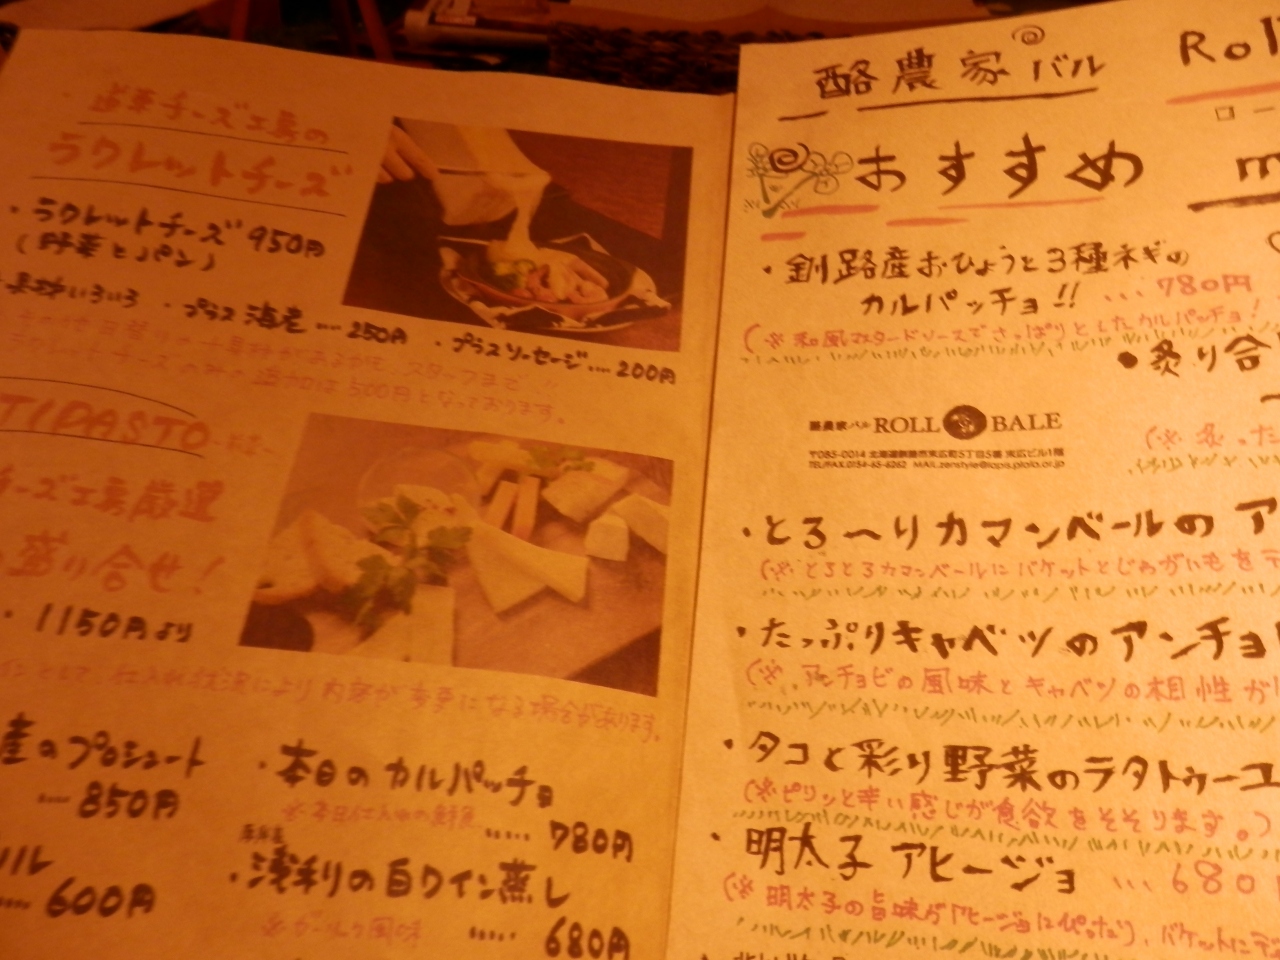 チーズ工房の
ラクレットチーズ
・ラクレットチーズ 950円
(野菜とパン)
具材いろいろ ・プラス海老 .... 250円 ・プラスソーセージ .... 200円
スタッフまで!!
ラクレットチーズのみの追加は500円となっております。
TIPASTO
チーズ工房厳選
盛り合せ!
・1150円より
仕入れ状況により内容が変更になる場合があります。
産のプロシュート
.... 850円
・本日のカルパッチョ
※本日仕入れの鮮魚
..... 780円
..... 600円
・浅利の白ワイン蒸し
※ガーリック風味
..... 680円
酪農家バル Roll
ロー
おすすめ m
・釧路産おひょうと3種ネギの
カルパッチョ!! ... 780円
(※和風マスタードソースでさっぱりとしたカルパッチョ!
●炙り合
酪農家バル ROLL BALE
〒085-0014 北海道釧路市末広町5丁目5番 末広ビル1階
TEL/FAX.0154-65-6262 MAIL.zenstyle@lapis.plala.or.jp
・とろ〜りカマンベールのア
(※とろとろカマンベールにバケットとじゃがいもをデ
・たっぷりキャベツのアンチョビ
(※アンチョビの風味とキャベツの相性が
・タコと彩り野菜のラタトゥーユ
(※ピリッと辛い感じが食欲をそそります。)
・明太子アヒージョ ... 680
(※明太子の旨味がアヒージョにぴったり、バケットにデ